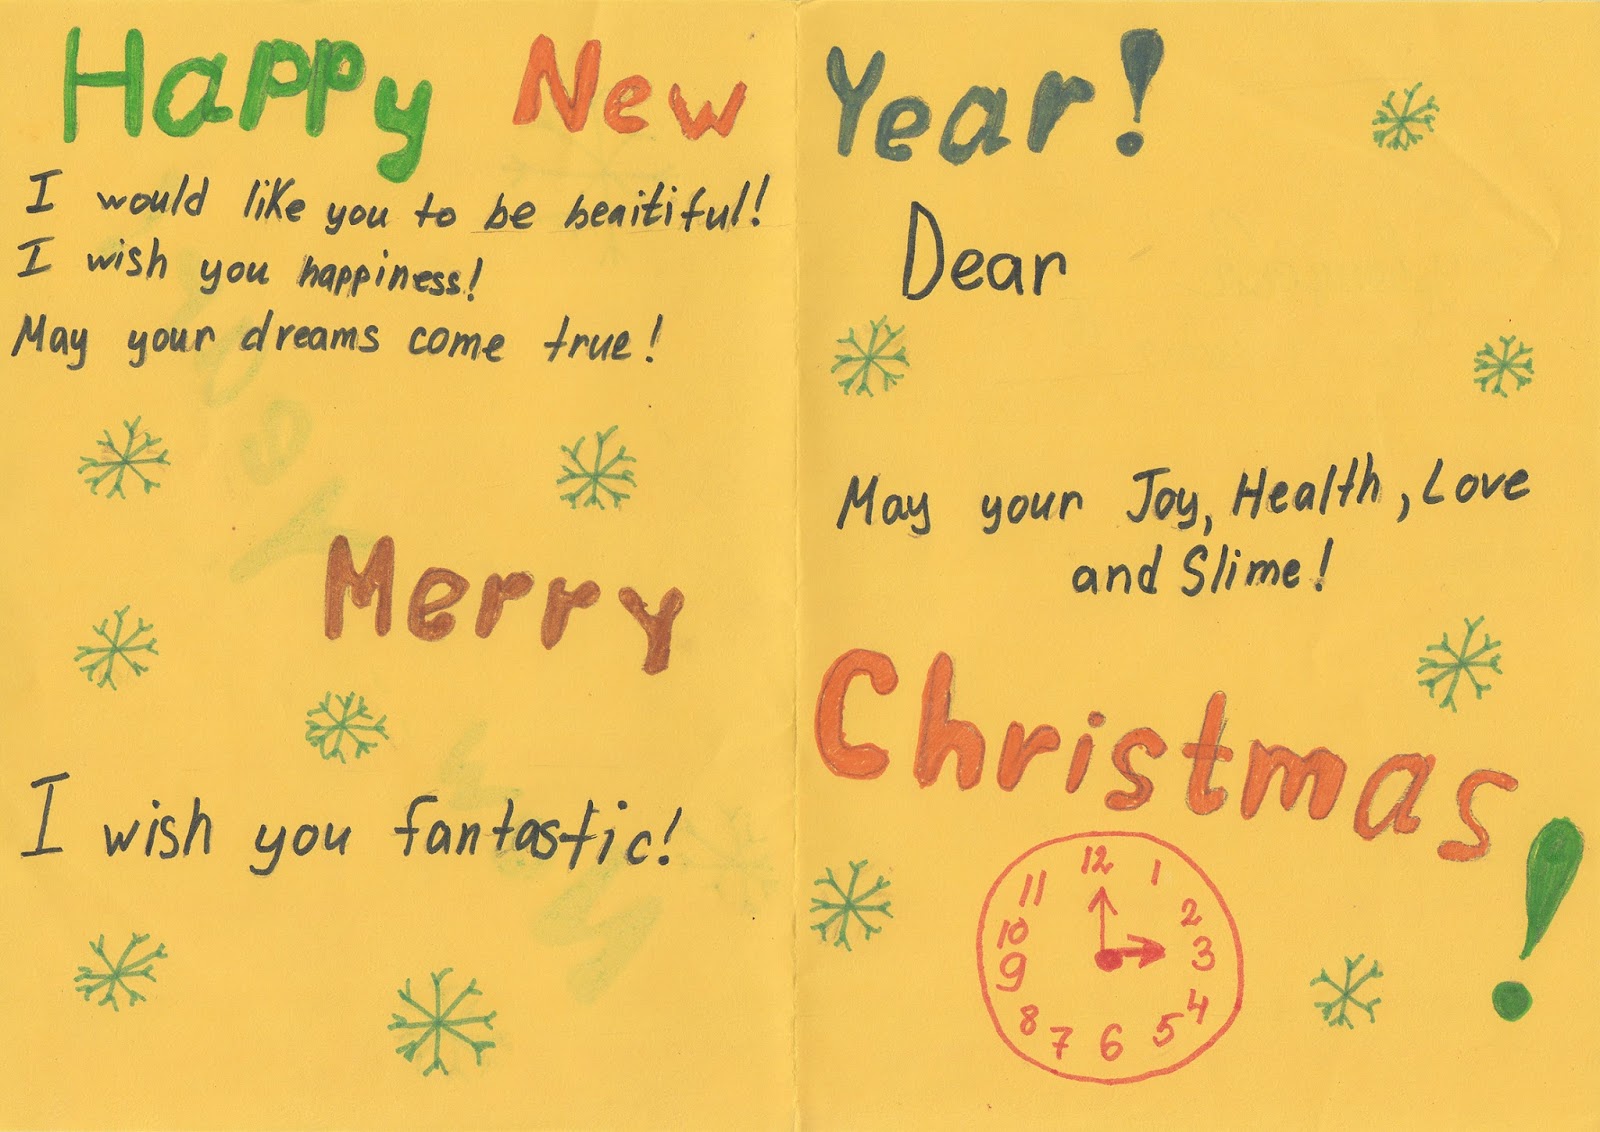 Happy New Year!
I would like you to be beaitiful!
I wish you happiness!
May your dreams come true!
Dear
May your Joy, Health, Love
and Slime!
Merry Christmas!
I wish you fantastic!
12
1
2
3
4
5
6
7
8
9
10
11